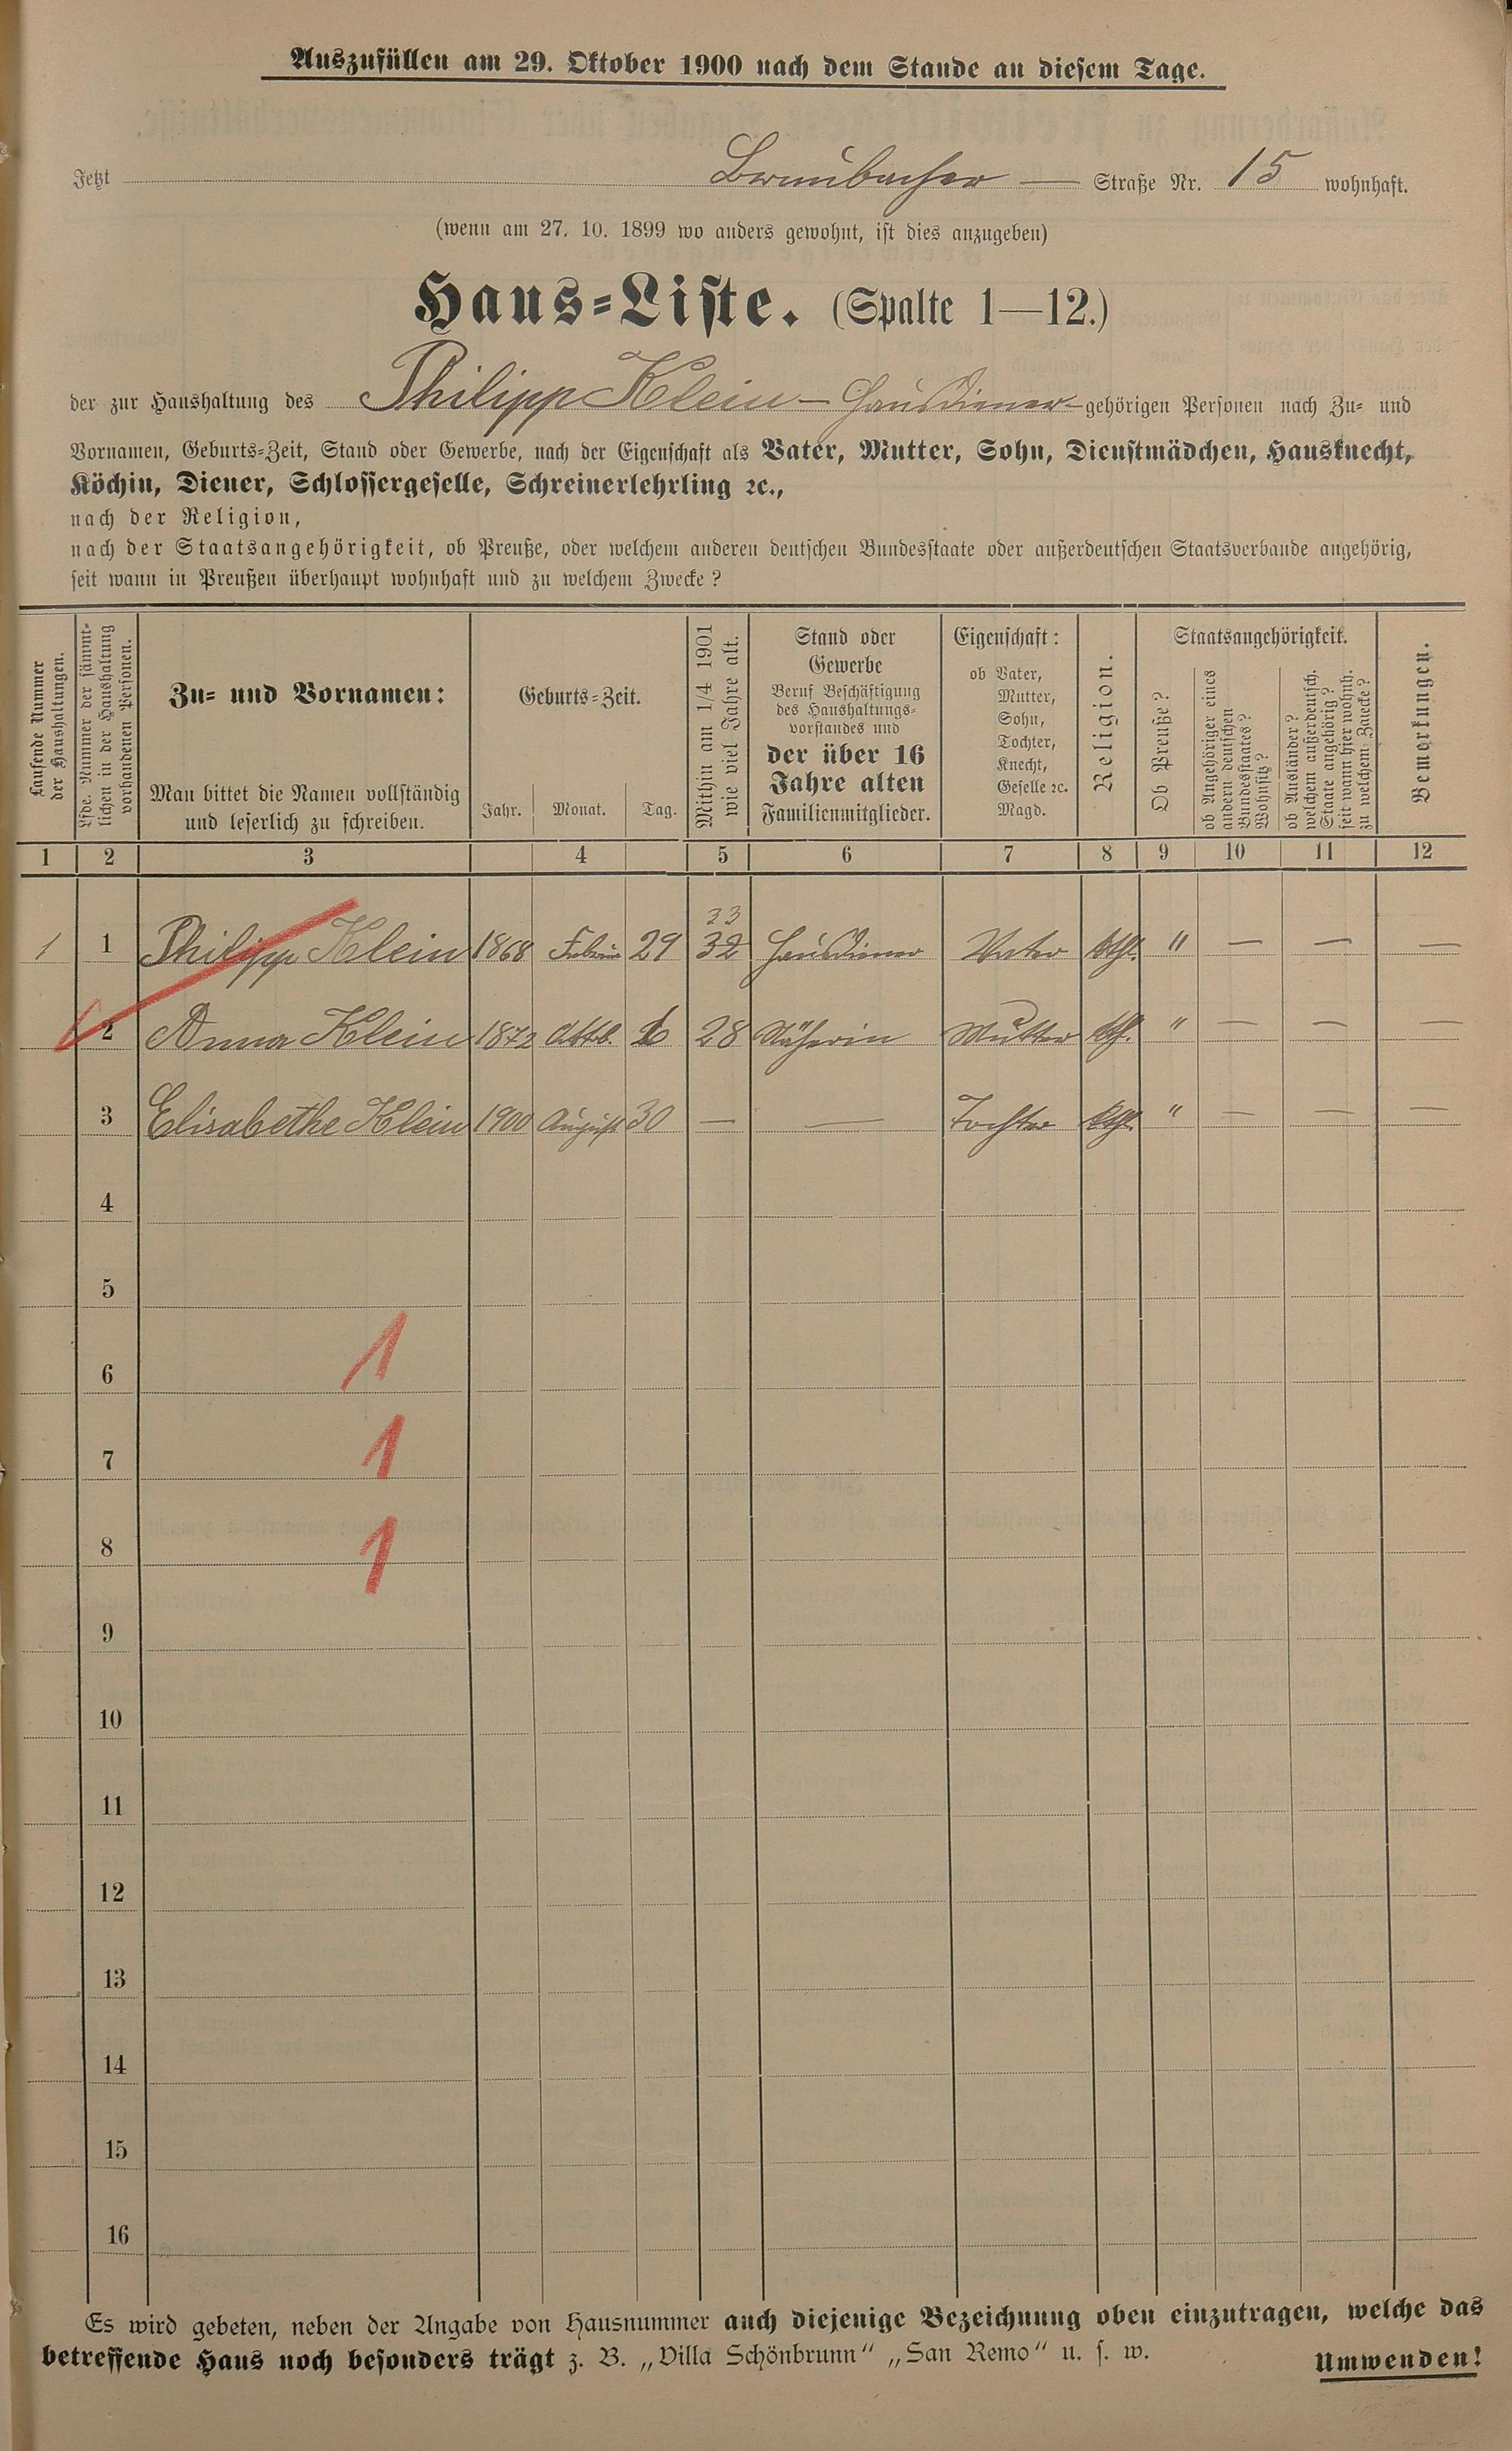 Auszufüllen am 29. Oktober 1900 nach dem Stande an diesem Tage.
Jetzt Straße Nr. 15 wohnhaft.
(wenn am 27. 10. 1899 wo anders gewohnt, ist dies anzugeben)
Haus-Liste. (Spalte 1—12.)
der zur Haushaltung des Philipp Klein – Hausdiener – gehörigen Personen nach Zu- und
Vornamen, Geburts-Zeit, Stand oder Gewerbe, nach der Eigenschaft als Vater, Mutter, Sohn, Dienstmädchen, Hausknecht,
Köchin, Diener, Schlossergeselle, Schreinerlehrling ꝛc.,
nach der Religion,
nach der Staatsangehörigkeit, ob Preuße, oder welchem anderen deutschen Bundesstaate oder außerdeutschen Staatsverbande angehörig,
seit wann in Preußen überhaupt wohnhaft und zu welchem Zwecke?
Laufende Nummer
der Haushaltungen.
Lfde. Nummer der sämmt-
lichen in der Haushaltung
vorhandenen Personen.
Zu- und Vornamen:
Man bittet die Namen vollständig
und leserlich zu schreiben.
Geburts-Zeit.
Jahr. Monat. Tag.
Mithin am 1/4 1901
wie viel Jahre alt.
Stand oder
Gewerbe
Beruf Beschäftigung
des Haushaltungs-
vorstandes und
der über 16
Jahre alten
Familienmitglieder.
Eigenschaft:
ob Vater,
Mutter,
Sohn,
Tochter,
Knecht,
Geselle ꝛc.
Magd.
Religion.
Staatsangehörigkeit.
Ob Preuße?
ob Angehöriger eines
andern deutschen
Bundesstaates?
Wohnsitz?
ob Ausländer?
welchem außerdeutsch.
Staate angehörig?
seit wann hier wohnh.
zu welchem Zwecke?
Bemerkungen.
1 2 3 4 5 6 7 8 9 10 11 12
33
1 1 Philipp Klein 1868 29 32 Hausdiener Vater kth. " — — —
2 Anna Klein 1872 28 Näherin Mutter kth. " — — —
3 Elisabethe Klein 1900 August 30 — — Tochter kth. " — — —
4
5
6 1
7 1
8 1
9
10
11
12
13
14
15
16
Es wird gebeten, neben der Angabe von Hausnummer auch diejenige Bezeichnung oben einzutragen, welche das
betreffende Haus noch besonders trägt z. B. „Villa Schönbrunn“ „San Remo“ u. s. w.
Umwenden!